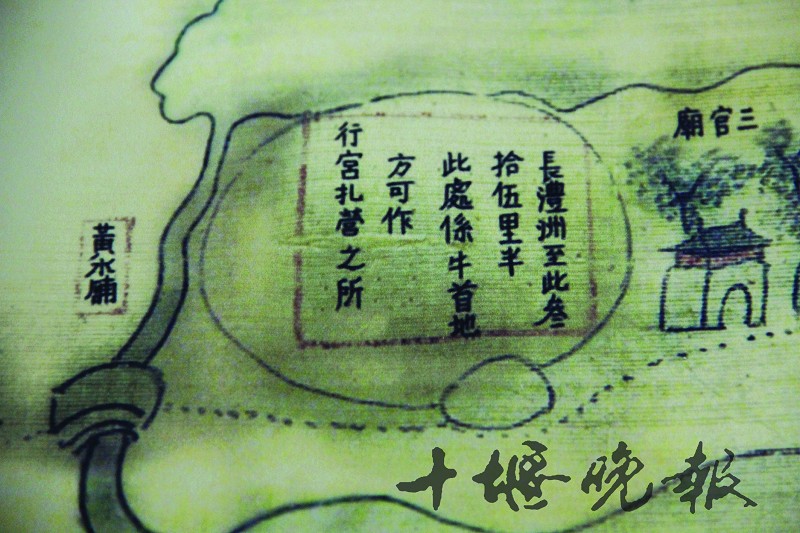 三官廟
長澧洲至此叁
拾伍里半
此處係牛首地
方可作
行宮扎營之所
黃水廟
十堰晚報